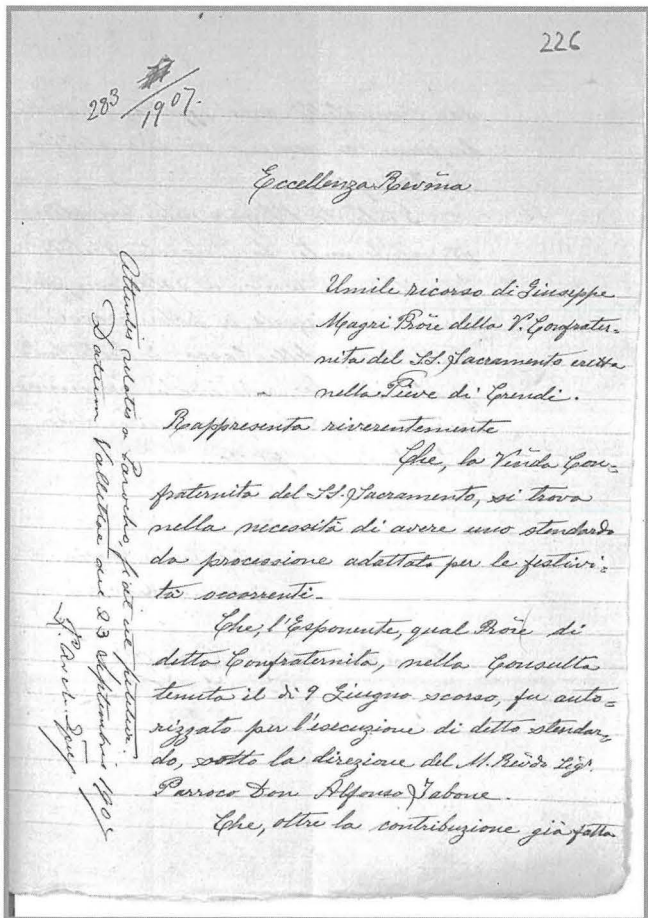 226
283/1907.
Eccellenza Revm̃a
Umile ricorso di Giuseppe
Magri Prõre della V. Confrater=
nita del SS. Sacramento eretta
nella Pieve di Crendi.
Rappresenta riverentemente
Che, la Vñda Con=
fraternita del SS. Sacramento, si trova
nella necessità di avere uno stendardo
da processione adattato per le festivi=
tà occorrenti.
Che, l'Esponente, qual Prõre di
detta Confraternita, nella Consulta
tenuta il dì 9 Giugno scorso, fu auto=
rizzato per l'esecuzione di detto stendar=
do, sotto la direzione del M. Revdo Sigr
Parroco Don Alfonso Tabone.
Che, oltre la contribuzione già fatta
Attentis relatis a Parocho, fiat ut petitur.
Datum Vallettae die 23 Septembris 1907